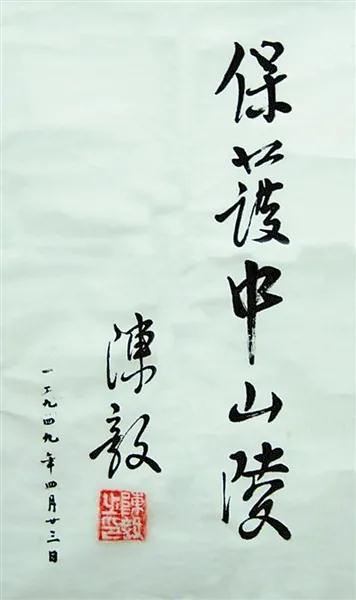 保護中山陵
陳毅
陳毅之印
一九四九年四月廿三日